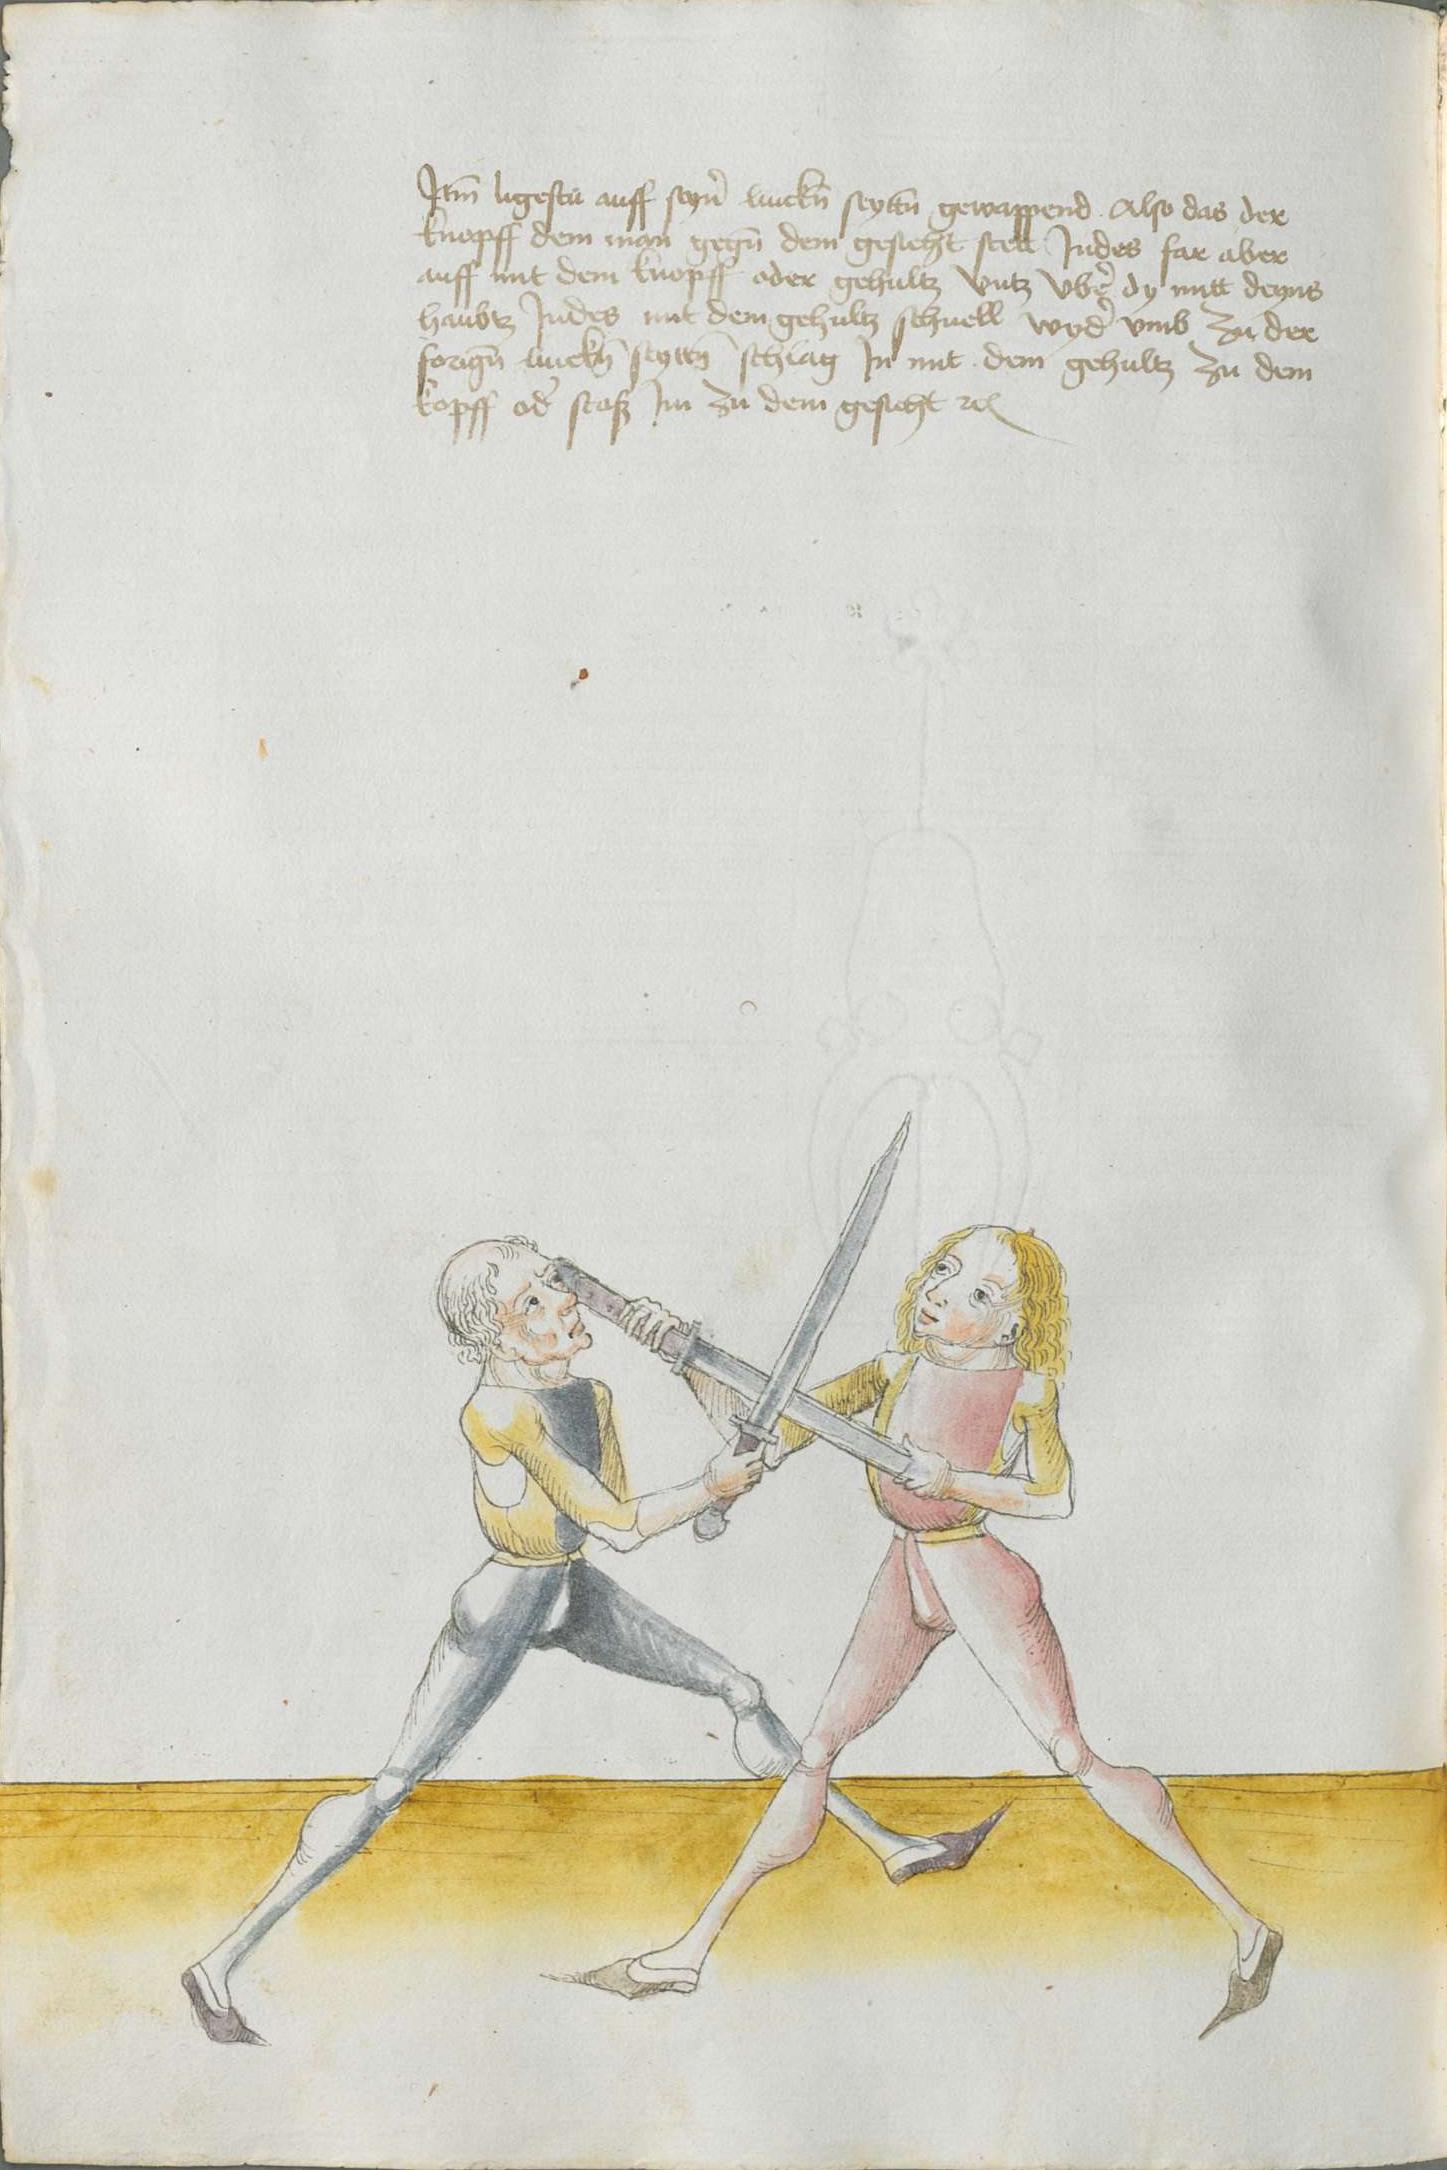 Itm̄ ligestu auff seyn̄ linckn̄ seyttn̄ gewappend . Also das der
knopff dem man gegn̄ dem gesicht stett Indes far aber
auff mit dem knopff oder gehultz vntz vbe᷑ dy mitt deyns
haubtz Indes mit dem gehultz schnell wyd᷑ vmb zu der
forign̄ linckn̄ seyttn̄ schlag In mit dem gehultz zu dem
kopff od᷑ stoß Im zu dem gesicht ꝛcꝭ